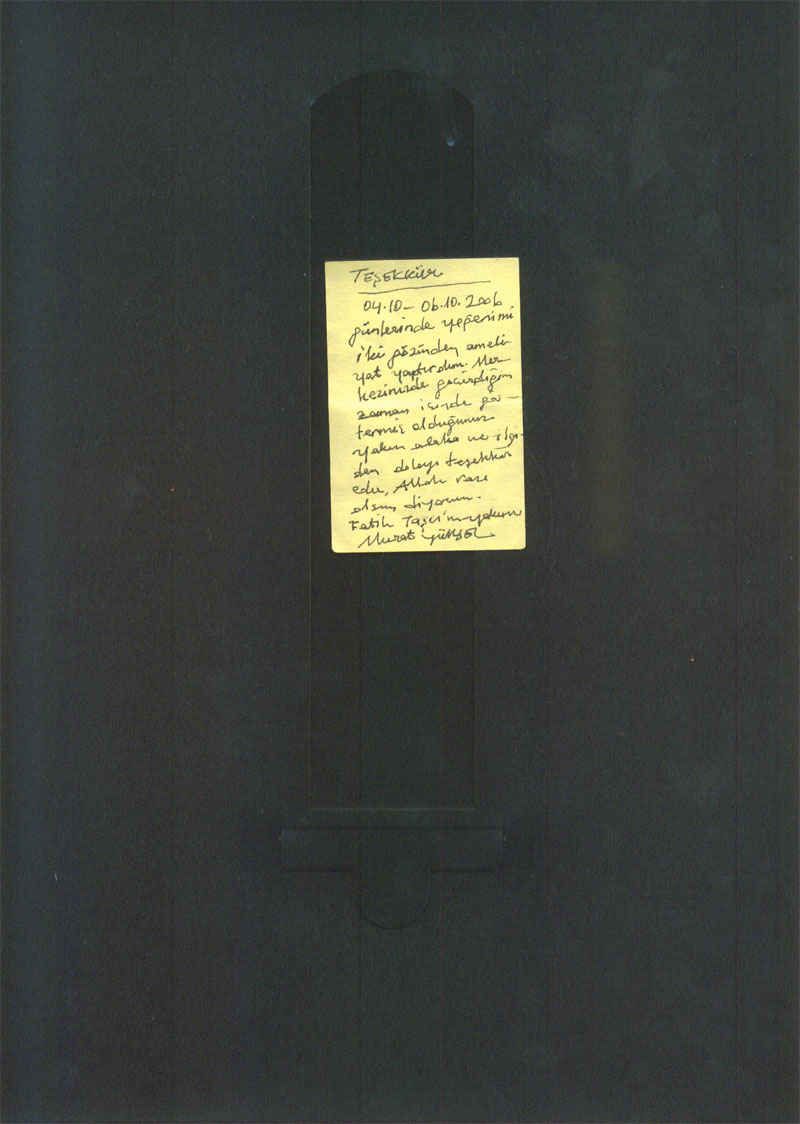 TEŞEKKÜR
04.10 - 06.10.2006
günlerinde yeğenimi
iki gözünden ameli-
yat yaptırdım. Mer
kezinizde geçirdiğim
zaman içinde gös-
termiş olduğunuz
yakın alaka ve ilgi-
den dolayı teşekkür
eder, Allah razı
olsun diyorum.
Fatih yakını
Murat YÜKSEL